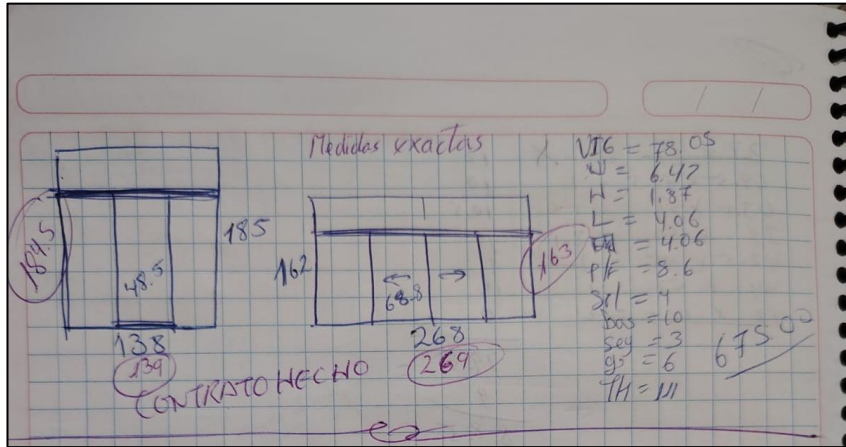 Medidas exactas
184.5
48.5
185
138
139
162
68.8
163
268
269
CONTRATO HECHO
VT6 = 78.05
U = 6.42
H = 1.87
L = 4.06
= 4.06
P/F = 8.6
Sil = 4
bas = 10
seg = 3
gs = 6
TH = 111
675.00